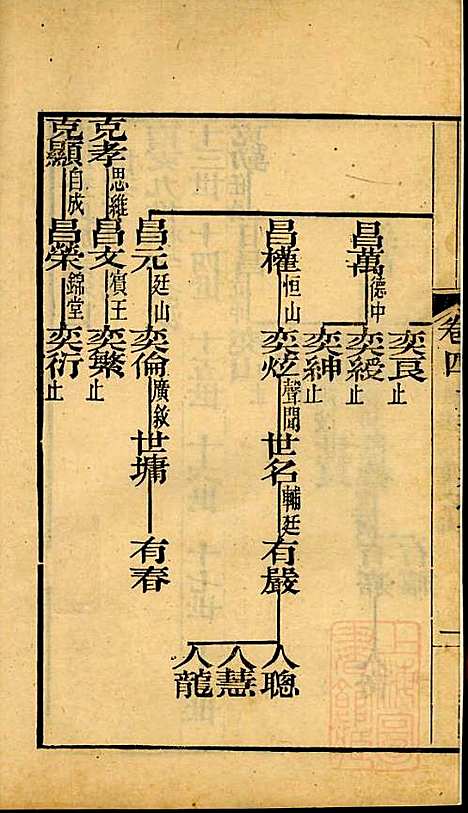 卷四
奕良 止
昌萬 德中 奕綬 止
奕紳 止
昌權 恒山 奕炫 聲聞 世名 輔廷 有嚴 人聰
人慧
人龍
昌元 廷山 奕倫 廣敘 世墉 有春
克孝 思維 昌文 賓王 奕繁 止
克顯 自成 昌榮 錦堂 奕衍 止